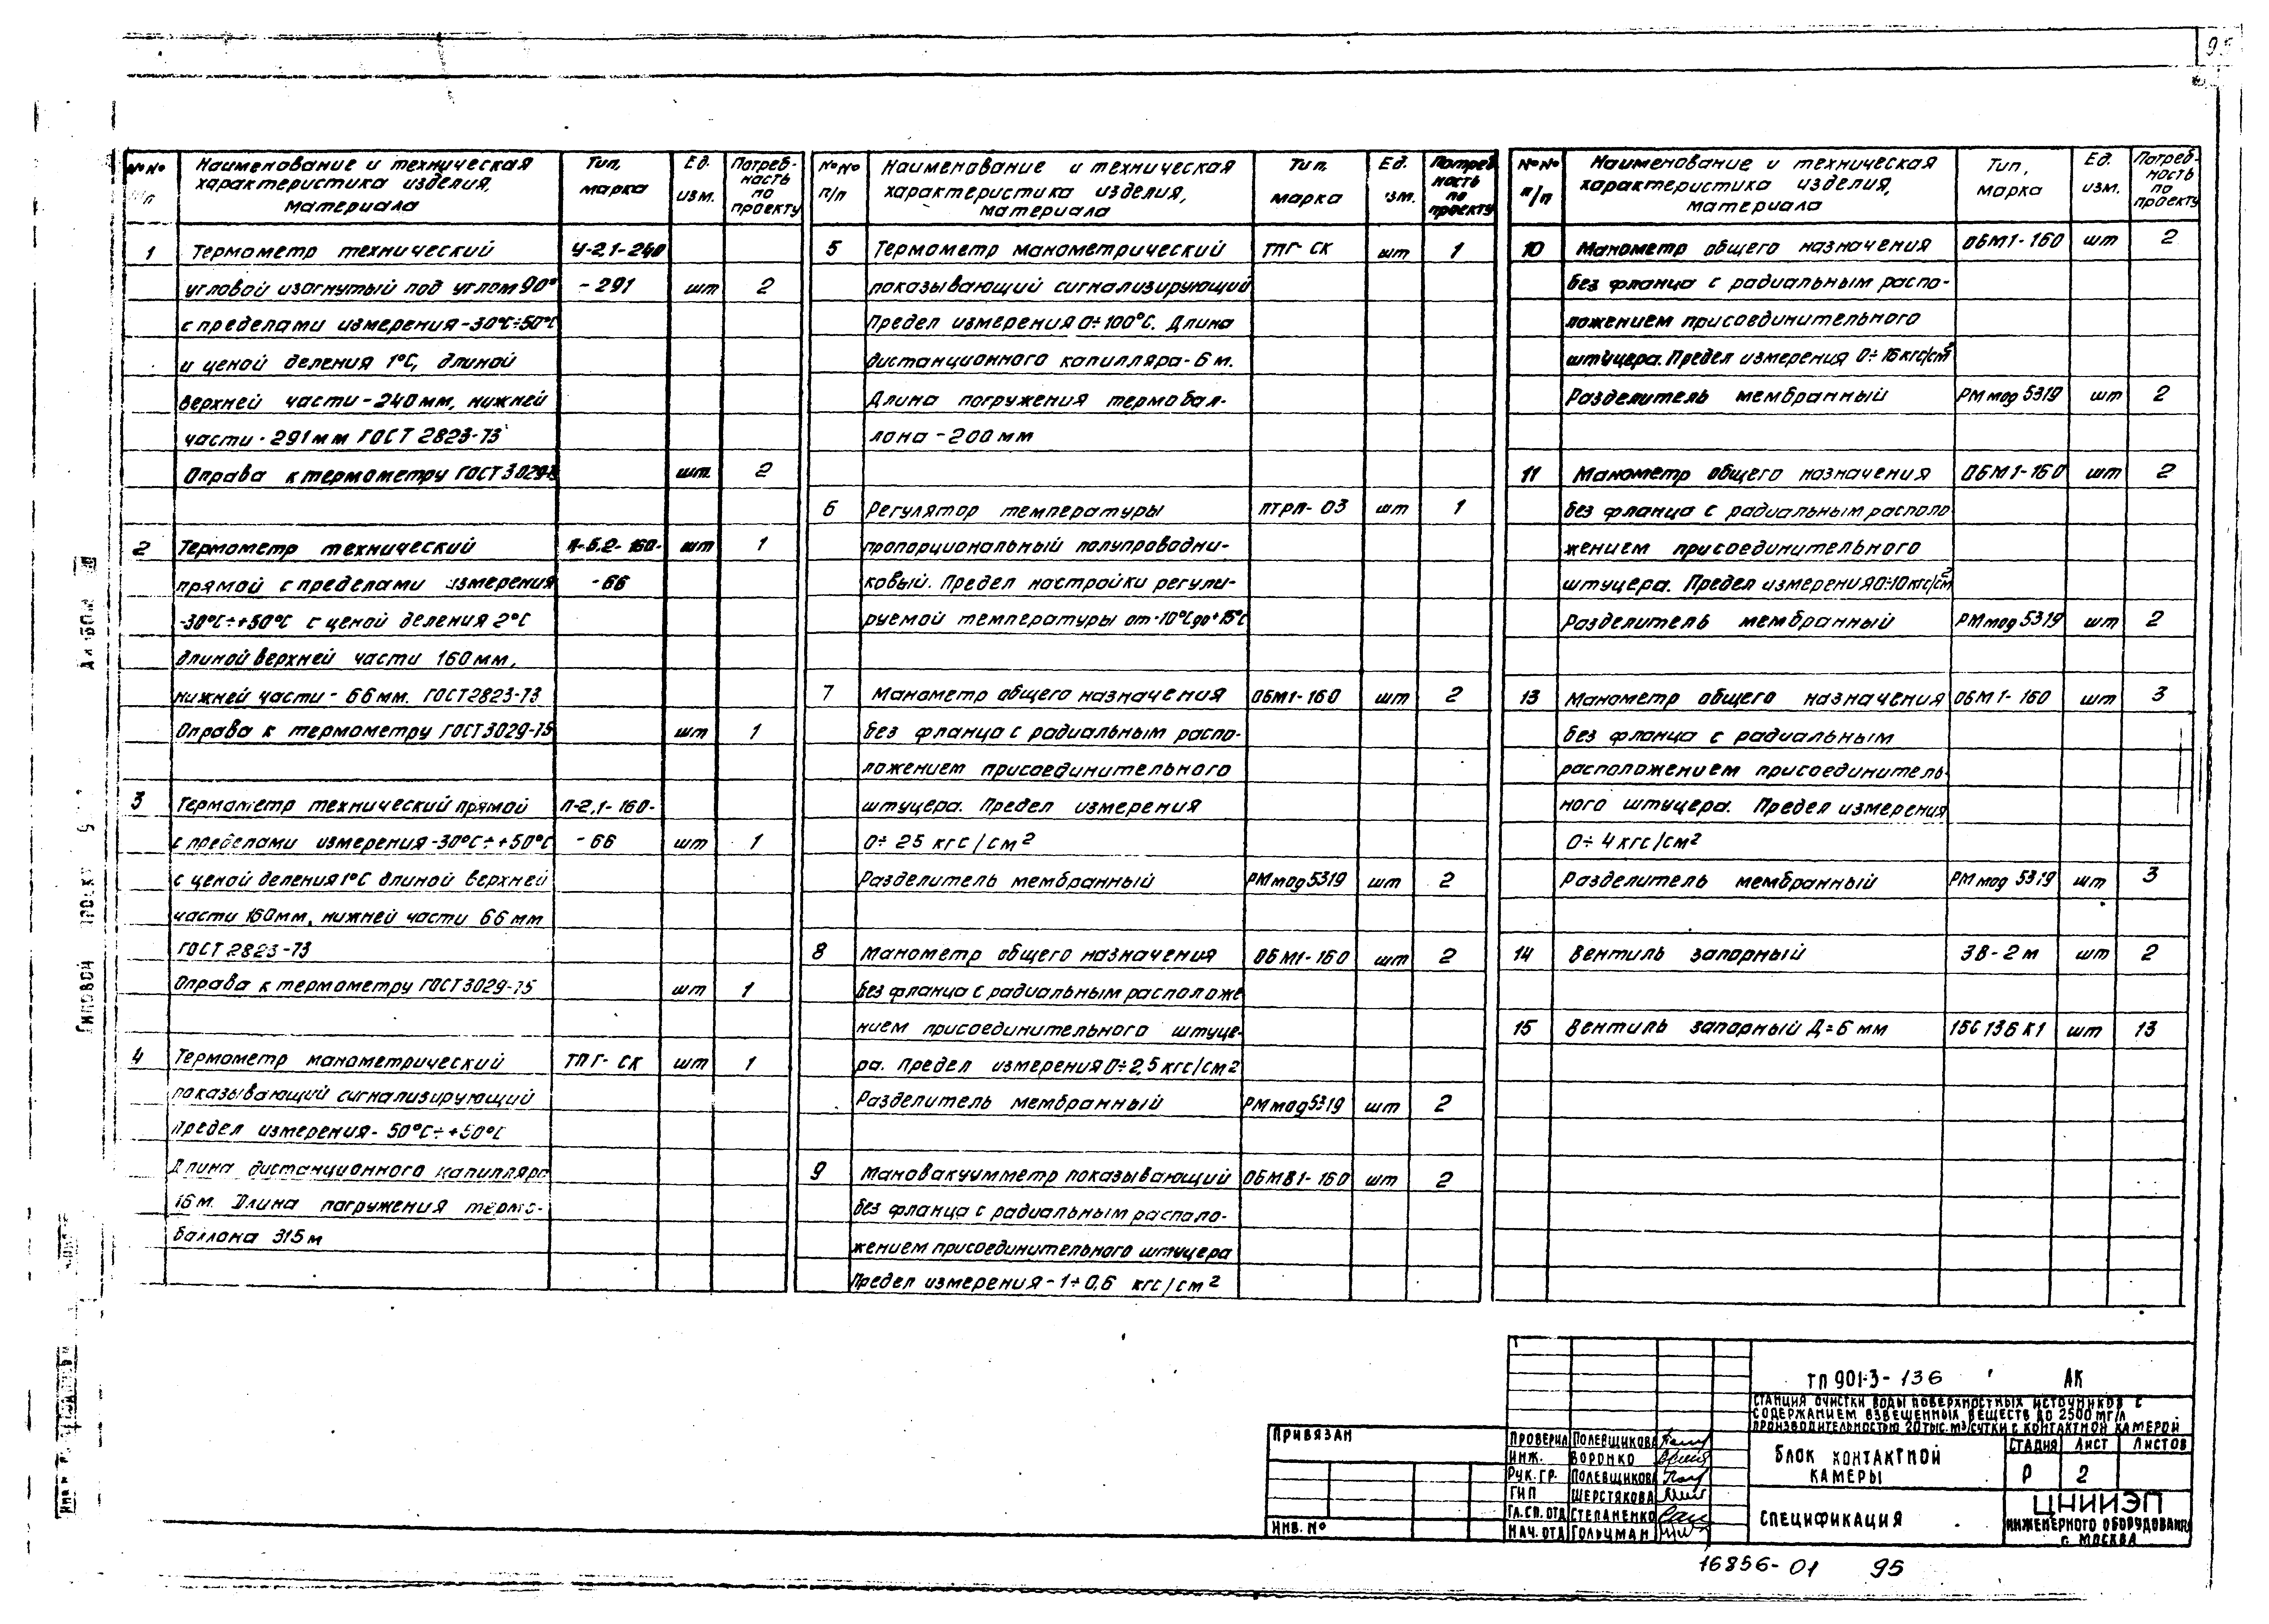 95
№№ п/п
Наименование и техническая характеристика изделия, материала
Тип, марка
Ед. изм.
Потреб-ность по проекту
1 Термометр технический У-2,1-240
угловой изогнутый под углом 90° -291 шт 2
с пределами измерения -30°С÷50°С
и ценой деления 1°С, длиной
верхней части - 240 мм, нижней
части - 291 мм ГОСТ 2823-73
Оправа к термометру ГОСТ 3029- шт. 2
2 Термометр технический П-5.2-160- шт 1
прямой с пределами измерения -66
-30°С÷+50°С с ценой деления 2°С
длиной верхней части 160 мм,
нижней части - 66 мм. ГОСТ 2823-73
Оправа к термометру ГОСТ 3029-75 шт 1
3 Термометр технический прямой П-2,1-160-
с пределами измерения -30°С÷+50°С -66 шт 1
с ценой деления 1°С длиной верхней
части 160 мм, нижней части 66 мм
ГОСТ 2823-73
Оправа к термометру ГОСТ 3029-75 шт 1
4 Термометр манометрический ТПГ-СК шт 1
показывающий сигнализирующий
Предел измерения - 50°С÷+50°С
Длина дистанционного капилляра
16 м. Длина погружения термо-
баллона 315 м
№№ п/п
Наименование и техническая характеристика изделия, материала
Тип, марка
Ед. изм.
Потреб ность по проекту
5 Термометр манометрический ТПГ-СК шт 1
показывающий сигнализирующий
Предел измерения 0÷100°С. Длина
дистанционного капилляра - 6 м.
Длина погружения термобал-
лона - 200 мм
6 Регулятор температуры ПТРП-03 шт 1
пропорциональный полупроводни-
ковый. Предел настройки регули-
руемой температуры от -10°С до +15°С
7 Манометр общего назначения ОБМ1-160 шт 2
без фланца с радиальным распо-
ложением присоединительного
штуцера. Предел измерения
0÷25 кгс/см²
Разделитель мембранный РМ мод 5319 шт 2
8 Манометр общего назначения ОБМ1-160 шт 2
без фланца с радиальным расположе
нием присоединительного штуце-
ра. Предел измерения 0÷2,5 кгс/см²
Разделитель мембранный РМ мод 5319 шт 2
9 Мановакуумметр показывающий ОБМВ1-160 шт 2
без фланца с радиальным располо-
жением присоединительного штуцера
Предел измерения -1÷0,6 кгс/см²
№№ п/п
Наименование и техническая характеристика изделия, материала
Тип, марка
Ед. изм.
Потреб-ность по проекту
10 Манометр общего назначения ОБМ1-160 шт 2
без фланца с радиальным распо-
ложением присоединительного
штуцера. Предел измерения 0÷16 кгс/см²
Разделитель мембранный РМ мод 5319 шт 2
11 Манометр общего назначения ОБМ1-160 шт 2
без фланца с радиальным располо
жением присоединительного
штуцера. Предел измерения 0÷10 кгс/см²
Разделитель мембранный РМ мод 5319 шт 2
13 Манометр общего назначения ОБМ1-160 шт 3
без фланца с радиальным
расположением присоединитель-
ного штуцера. Предел измерения
0÷4 кгс/см²
Разделитель мембранный РМ мод 5319 шт 3
14 Вентиль запорный ЗВ-2м шт 2
15 Вентиль запорный Д=6 мм 15С13бК1 шт 13
Типовой проект
Альбом
ТП 901-3-136 АК
СТАНЦИЯ ОЧИСТКИ ВОДЫ ПОВЕРХНОСТНЫХ ИСТОЧНИКОВ С
СОДЕРЖАНИЕМ ВЗВЕШЕННЫХ ВЕЩЕСТВ ДО 2500 МГ/Л
ПРОИЗВОДИТЕЛЬНОСТЬЮ 20 ТЫС. М³/СУТКИ С КОНТАКТНОЙ КАМЕРОЙ
ПРИВЯЗАН
ИНВ. №
ПРОВЕРИЛ ПОЛЕВЩИКОВА
ИНЖ. ВОРОНКО
РУК. ГР. ПОЛЕВЩИКОВА
ГИП ШЕРСТЯКОВА
ГЛ. СП. ОТД СТЕПАНЕНКО
НАЧ. ОТД ГОЛЬЦМАН
БЛОК КОНТАКТНОЙ
КАМЕРЫ
СТАДИЯ ЛИСТ ЛИСТОВ
Р 2
СПЕЦИФИКАЦИЯ
ЦНИИЭП
ИНЖЕНЕРНОГО ОБОРУДОВАНИЯ
Г. МОСКВА
16856-01 95